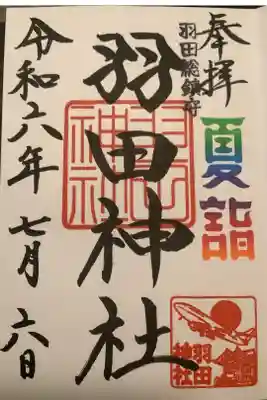 奉拝
羽田総鎮守
夏詣
羽田神社
羽田神社
令和六年七月六日
羽田神社